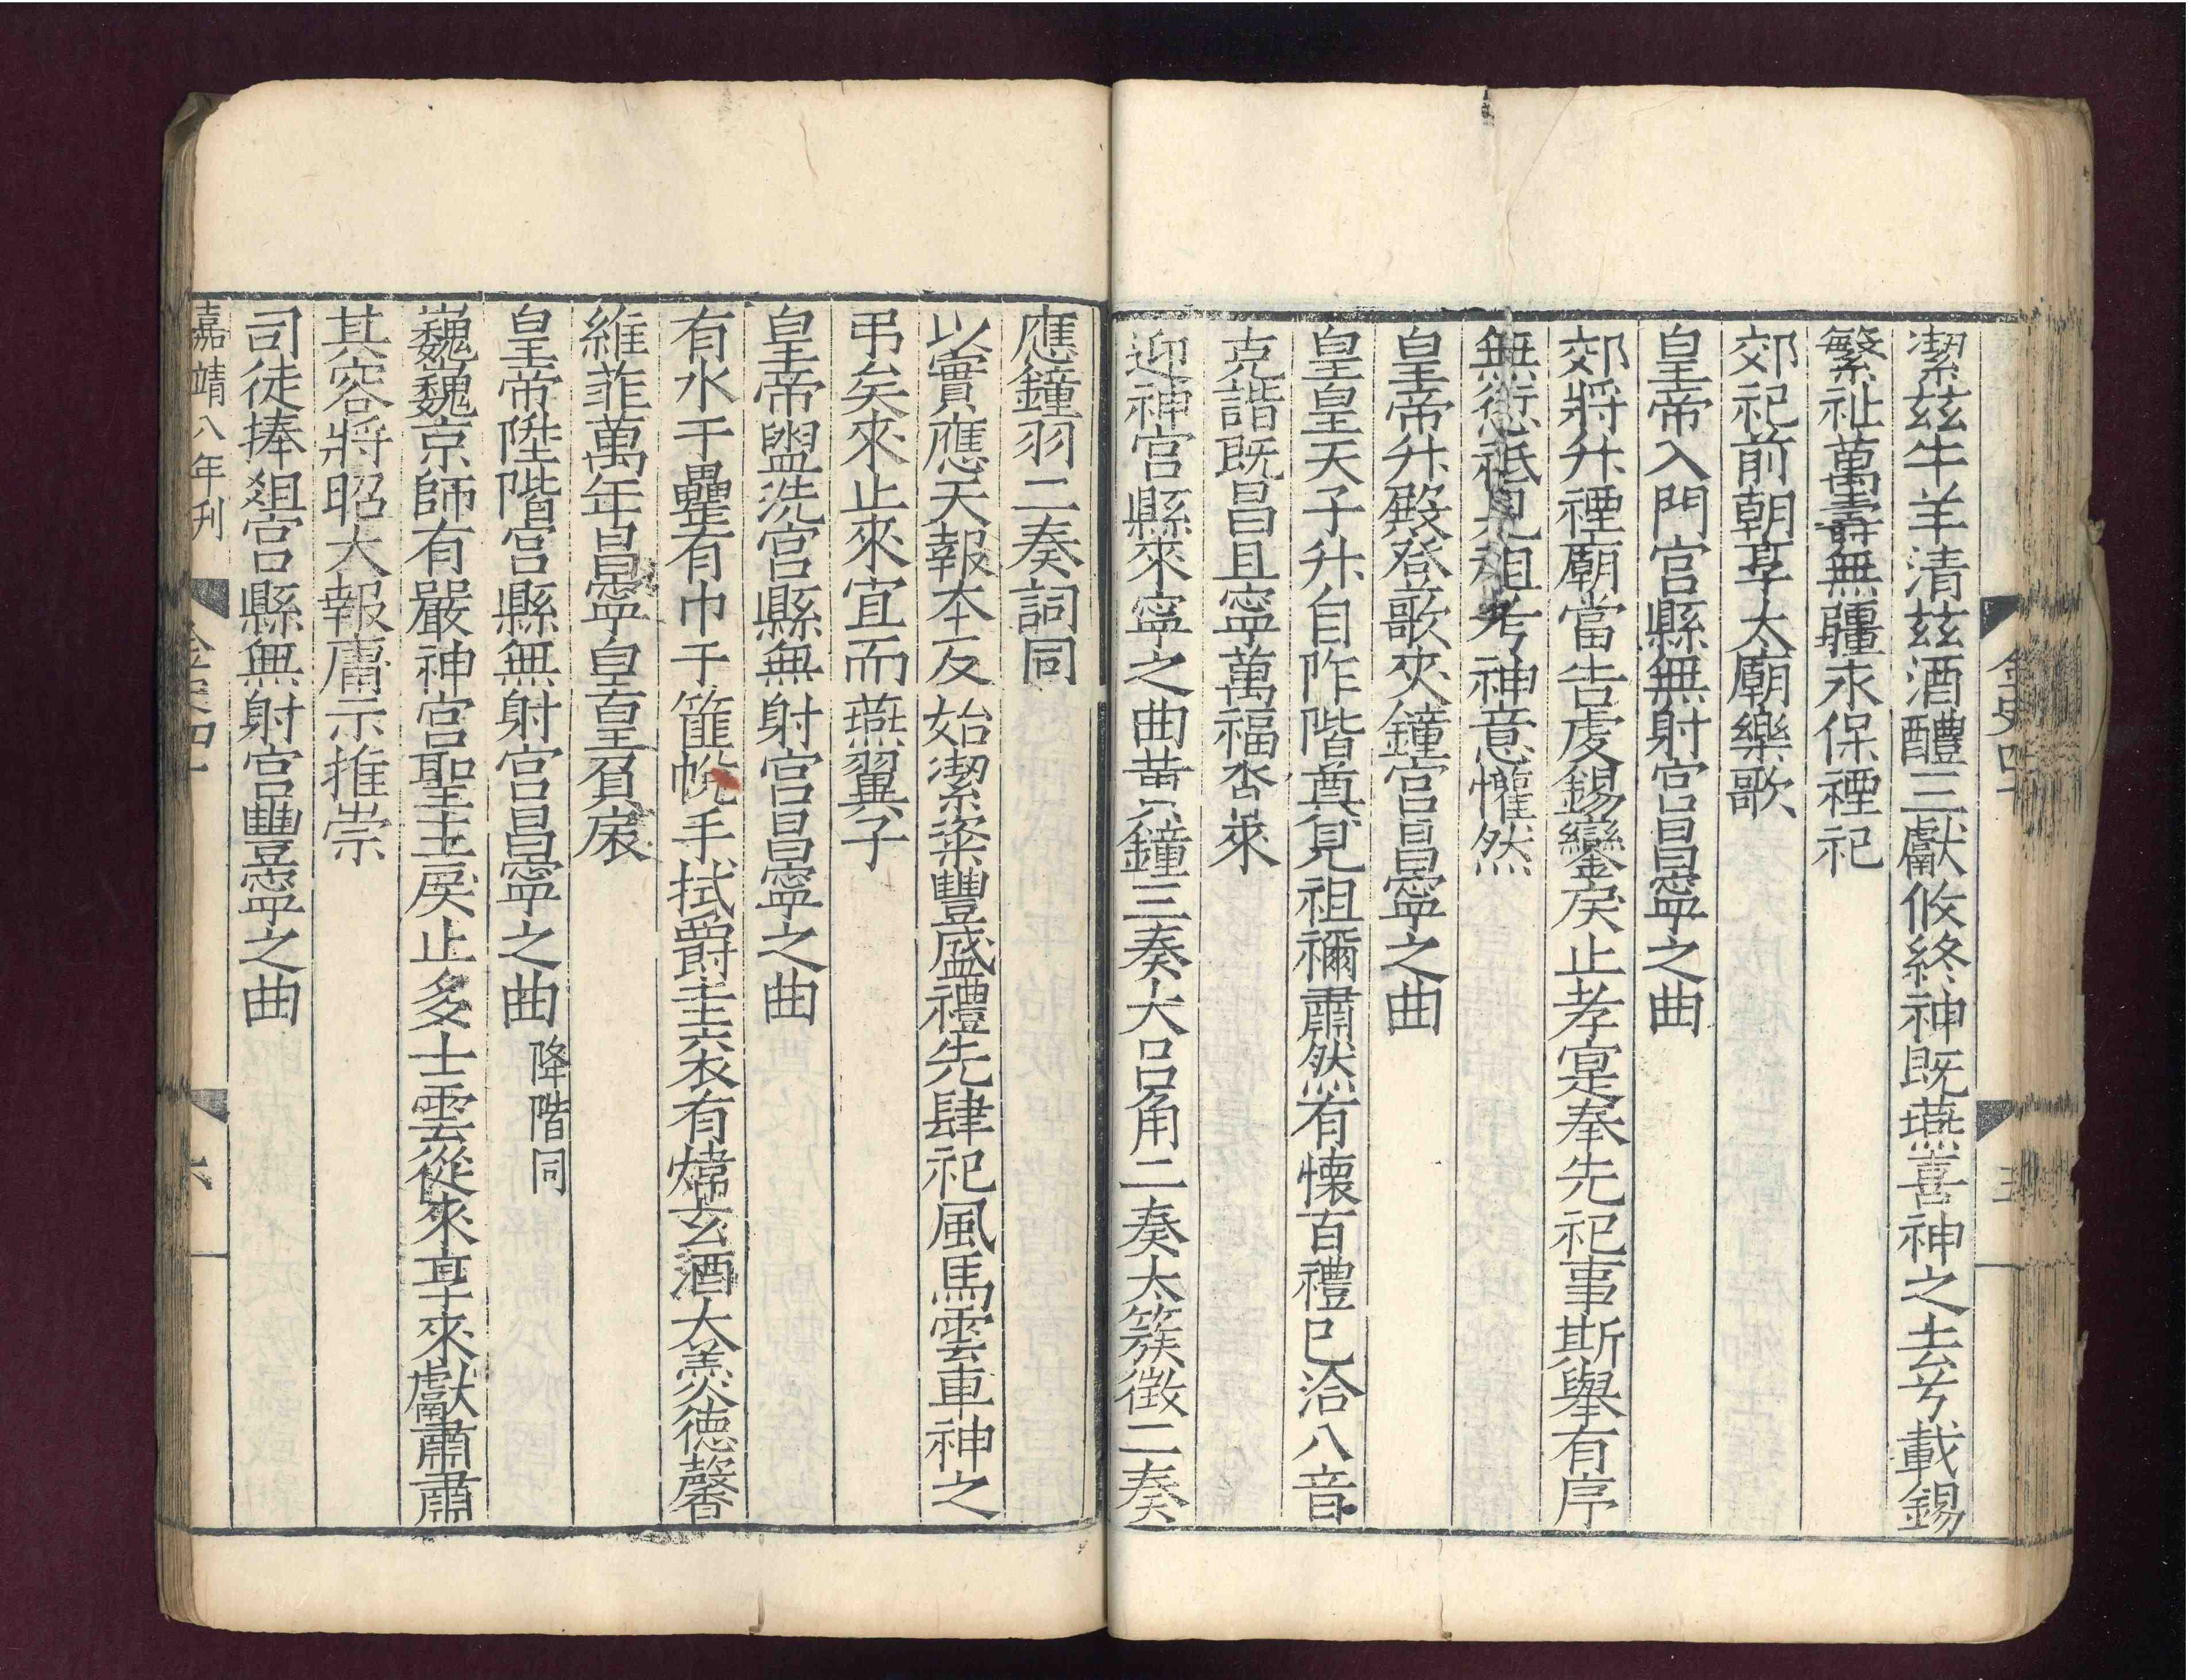 金史四十
五
潔茲牛羊清茲酒醴三獻攸終神既燕喜神之去兮載錫
繁祉萬壽無疆永保禋祀
郊祀前朝享太廟樂歌
皇帝入門宮縣無射宮昌寧之曲
郊將升禋廟當告虔錫鑾戾止孝寔奉先祀事斯舉有序
無愆祗見祖考神意懽然
皇帝升殿登歌夾鐘宮昌寧之曲
皇皇天子升自阼階奠見祖禰肅然有懷百禮已洽八音
克諧既昌且寧萬福沓來
迎神宮縣來寧之曲黃鐘三奏大呂角二奏太簇徵二奏
應鐘羽二奏詞同
以實應天報本反始潔粢豐盛禮先肆祀風馬雲車神之
弔矣來止來宜而燕翼子
皇帝盥洗宮縣無射宮昌寧之曲
有水于罍有巾于篚帨手拭爵圭衮有煒玄酒大羹德馨
維菲萬年昌寧皇皇負扆
皇帝陞階宮縣無射宮昌寧之曲 降階同
巍巍京師有嚴神宮聖主戾止多士雲從來享來獻肅肅
其容將昭大報庸示推崇
司徒捧俎宮縣無射宮豐寧之曲
嘉靖八年刊
金史四十
六